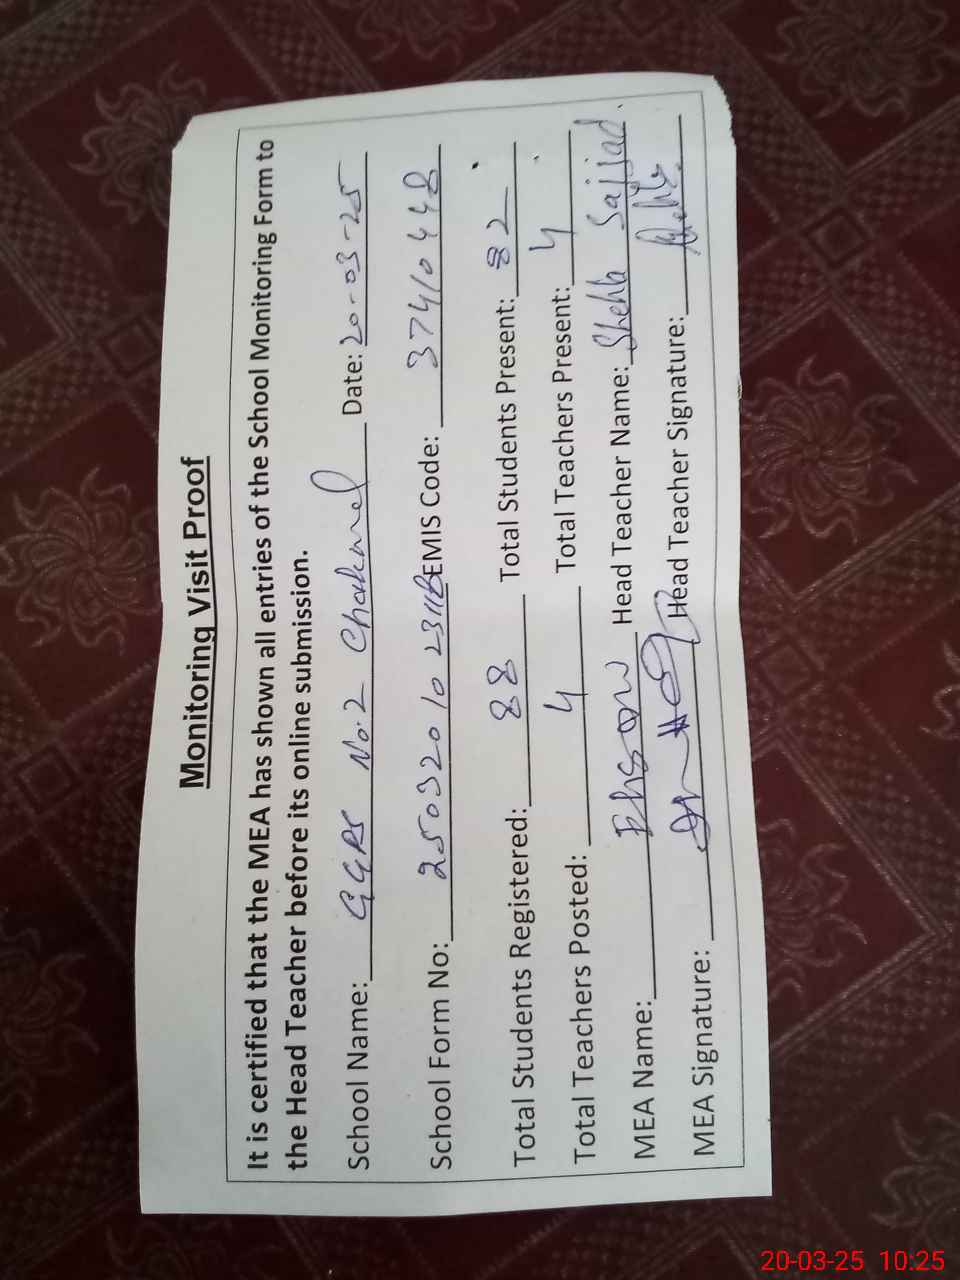 Monitoring Visit Proof
It is certified that the MEA has shown all entries of the School Monitoring Form to
the Head Teacher before its online submission.
School Name: GGPS No.2 Chakmal Date: 20-03-25
School Form No: EMIS Code: 37410448
Total Students Registered: 88 Total Students Present: 82
Total Teachers Posted: 4 Total Teachers Present: 4
MEA Name: Ehsan Head Teacher Name: Shehla Sajjad
MEA Signature: Head Teacher Signature:
20-03-25 10:25